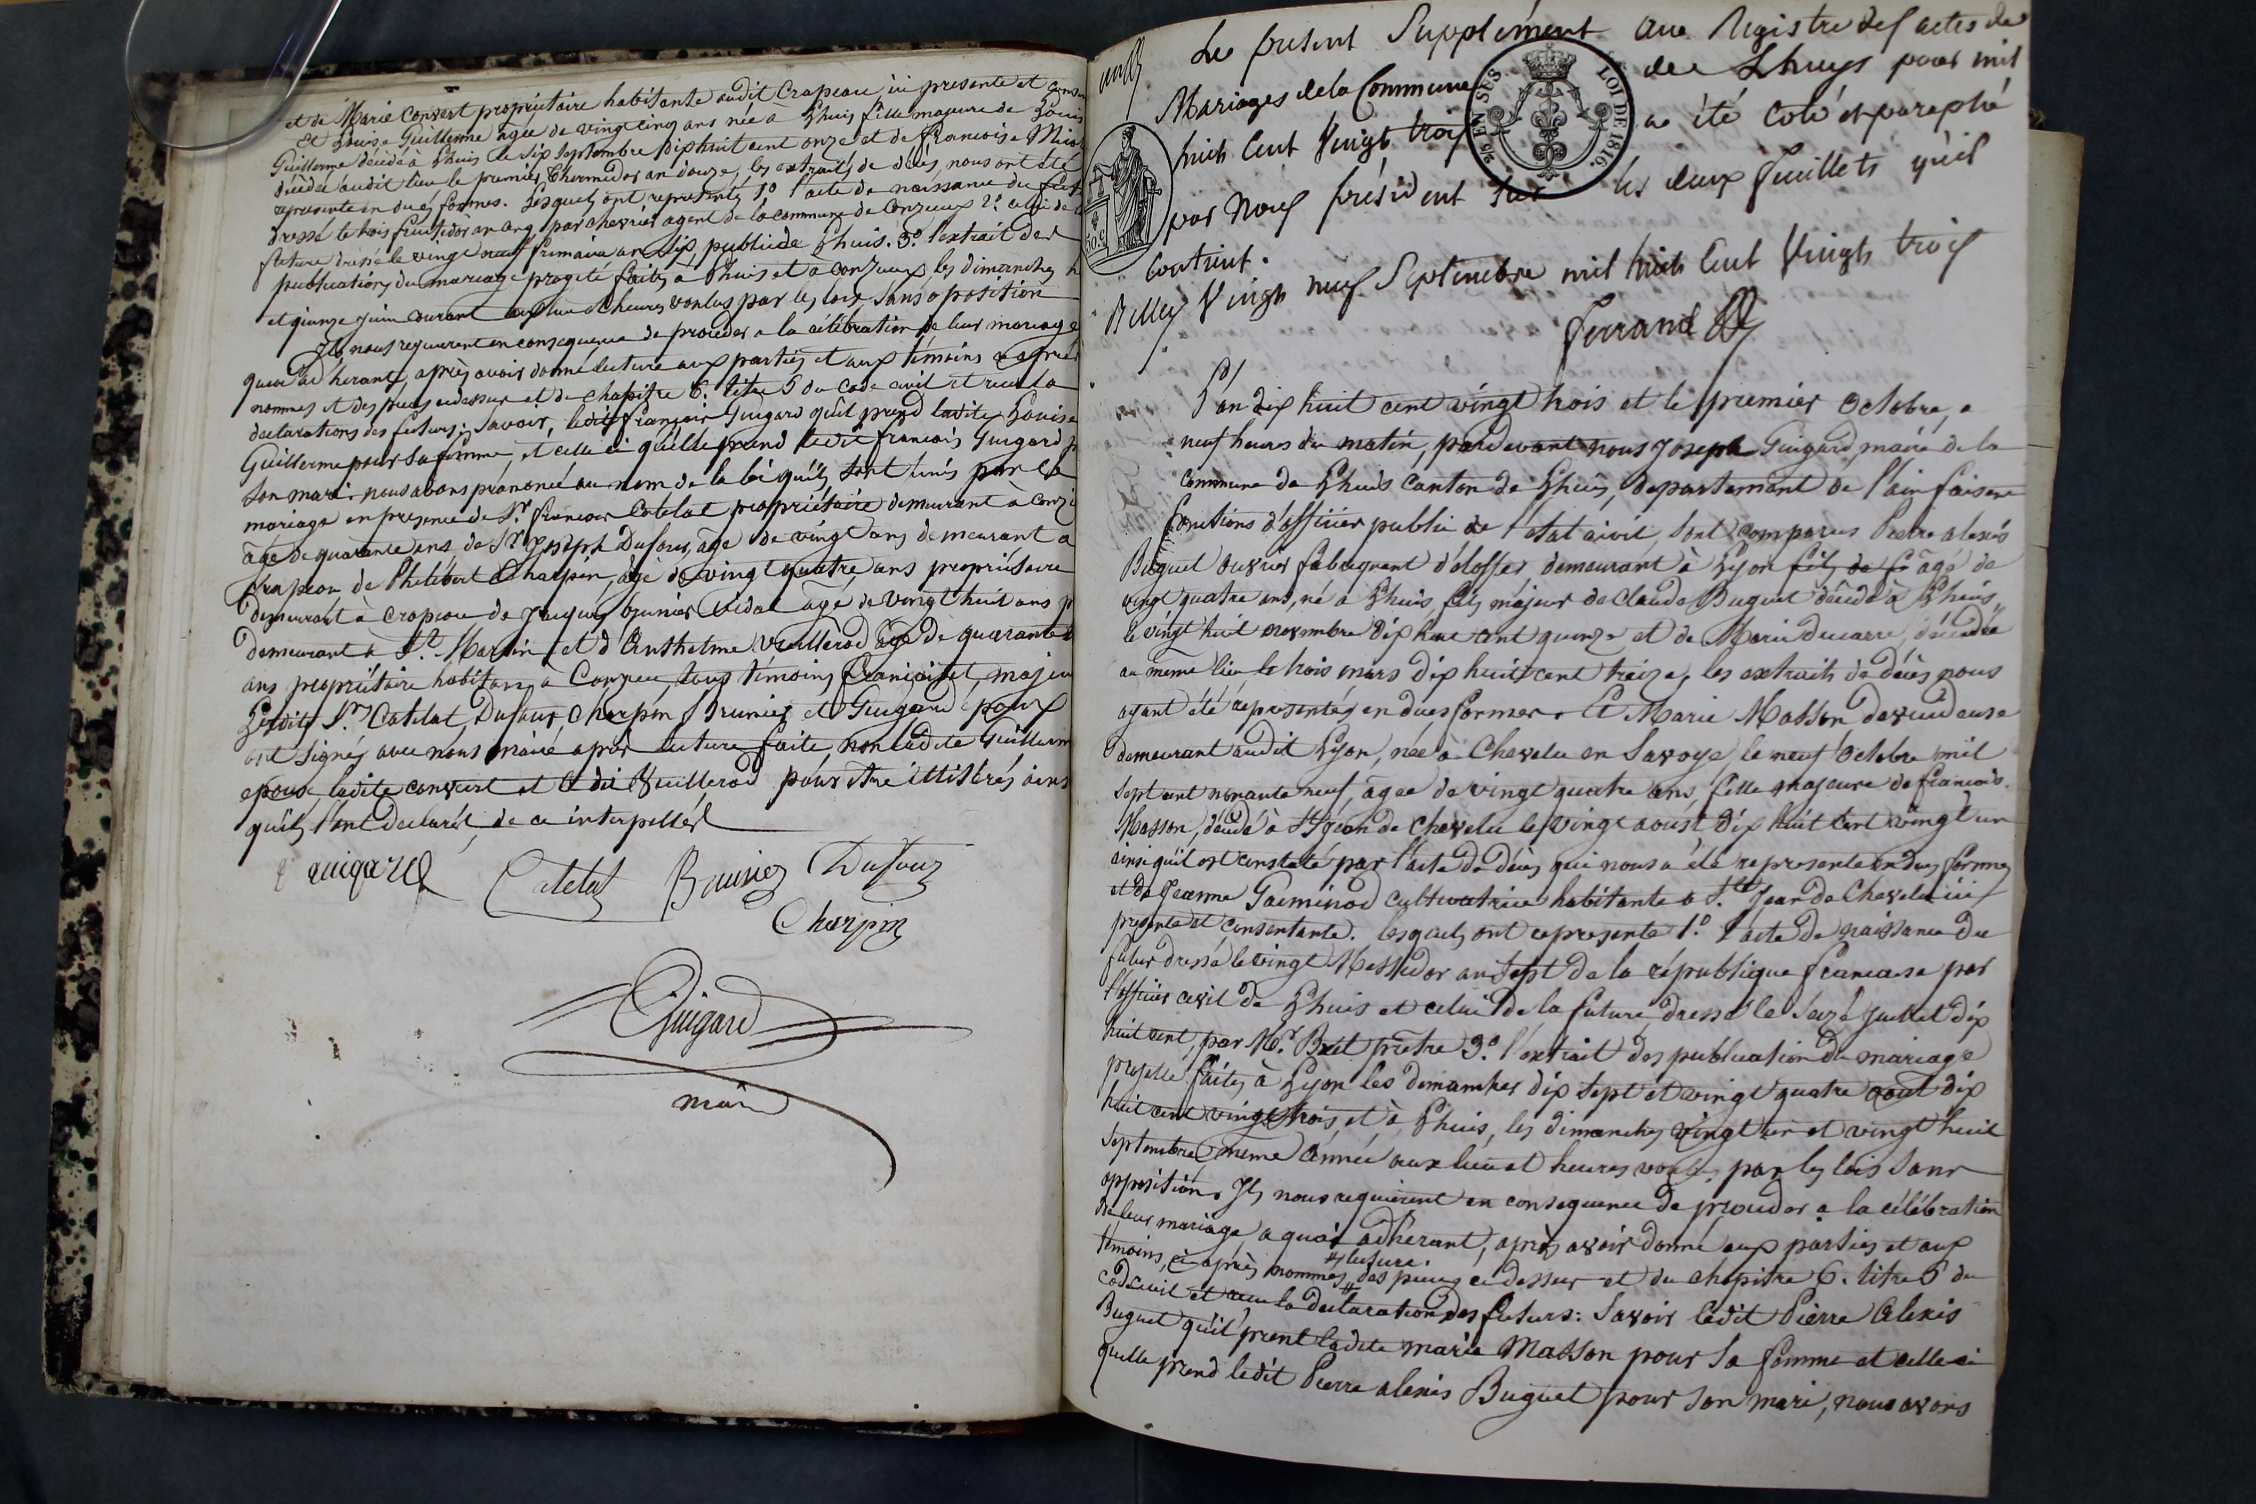 et de Marie Convert propriétaire habitante audit Crapeou ici presente et
Et Louise Guillerme agée de vingt cinq ans née à Lhuis fille majeure de Louis
Guillerme décédé à Lhuis le six septembre dix huit cent onze et de francoise
décédée audit lieu le premier thermidor an douze, les extraits de décès, nous ont été
representé en dues formes. Lesquels ont representé 1º l'acte de naissance du futur
dressé le trois fructidor an cinq, par chevrier agent de la commune de Conzieux 2º celui de
future dressé le vingt neuf frimaire an six, publié de Lhuis. 3º l'extrait des
publications du mariage projeté faites à Lhuis et à conzieux les dimanches
et quinze juin courant aux lieu et heures voulus par les lois sans oposition
Ils nous requierent en consequence de proceder a la célébration de leur mariage
quoi adherant, après avoir donné lecture aux parties et aux témoins ci après
nommés et des pieces cidessus et du chapitre 6. titre 5 du code civil et recu la
déclarations des futurs: Savoir, ledit françois Guigard qu'il prend ladite Louise
Guillerme pour sa femme, et celle ci qu'elle prend ledit francois Guigard
son mari. nous avons prononcé au nom de la loi qu'ils sont unis par le
mariage en presence de Sr. francois Catelat propriétaire demeurant à
âgé de quarante ans, de Sr. Joseph Dufour, âgé de vingt ans demeurant a
Crapeou de Philibert Charpin, âgé de vingt quatre ans propriétaire
demeurant à Crapeou de Jacques Brunier Vidal âgé de vingt huit ans
demeurant à St. Martin et d'Anthelme Vuillerod âgé de quarante
ans propriétaire habitant à Conzieu, tous témoins français et majeurs
Lesdits Srs. Catelat, Dufour, Charpin Brunier et Guigard époux
ont signé avec nous maire après lecture faite, non ladite Guillerme
epouse ladite convert et le dit Vuillerod pour être illitérés ainsi
qu'ils l'ont declarés de ce interpellés
guigard Catelat Brunier Dufour
Charpin
Guigard
maire
Le present Supplément aux Registre des actes de
Mariages de la Commune de Lhuys pour mil
huit Cent Vingt trois a été Coté et paraphé
par Nous président sur les deux feuillets qu'il
Contient.
EN SUS
LOI DE 1816.
Belley Vingt neuf Septembre mil huit Cent Vingt trois
Ferrand
L'an dix huit cent vingt trois et le premier Octobre, a
neuf heures du matin, pardevant nous Joseph Guigard maire de la
commune de Lhuis Canton de Lhuis, departement de l'ain faisant
fonctions d'officier public de l'etat civil, sont comparus Pierre alexis
Buguet ouvrier fabriquant d'étoffes demeurant à Lyon fils de fe âgé de
vingt quatre ans, né a Lhuis, fils majeur de Claude Buguet décédé à Lhuis,
le vingt huit novembre dix huit cent quinze et de Marie ducarre, décédée
au même lieu le trois mars dix huit cent treize, les extraits de décès nous
ayant été representés en dues formes. Et Marie Masson, devideuse
demeurant audit Lyon, née à Chevelu en Savoye, le neuf Octobre mil
sept cent nonante neuf, agée de vingt quatre ans, fille majeure de francois
Masson, décédé à St. Jean de Chevelu le vingt aoust dix huit cent vingt un
ainsi qu'il est constaté par l'acte de décès qui nous a été representé en dues formes
et de Jeanne Gaeminod cultivatrice habitante à St. Jean de Chevelu ici
presente et consentante. lesquels ont representé 1º. l'acte de naissance du
futur dressé le vingt Messidor an sept de la république francaise par
l'officier civil de Lhuis et celui de la future dressé le seize Juillet dix
huit cent, par Mr. Bret prêtre 3º. l'extrait des publication du mariage
projetté faites à Lyon les dimanches dix sept et vingt quatre aout dix
huit cent vingt trois, et à Lhuis, les dimanches vingt un et vingt huit
septembre même année aux lieu et heures voulus par les lois sans
opposition. Ils nous requierent en consequence de proceder a la célébration
de leur mariage, a quoi adhérant, après avoir donné aux parties et aux
témoins, ci après nommés lecture des pieces ci dessus et du chapitre 6. titre 5 du
code civil et recu la declaration des futurs: Savoir ledit Pierre Alexis
Buguet qu'il prent ladite marie Masson pour sa femme et celle ci
quelle prend ledit Pierre alexis Buguet pour son mari, nous avons